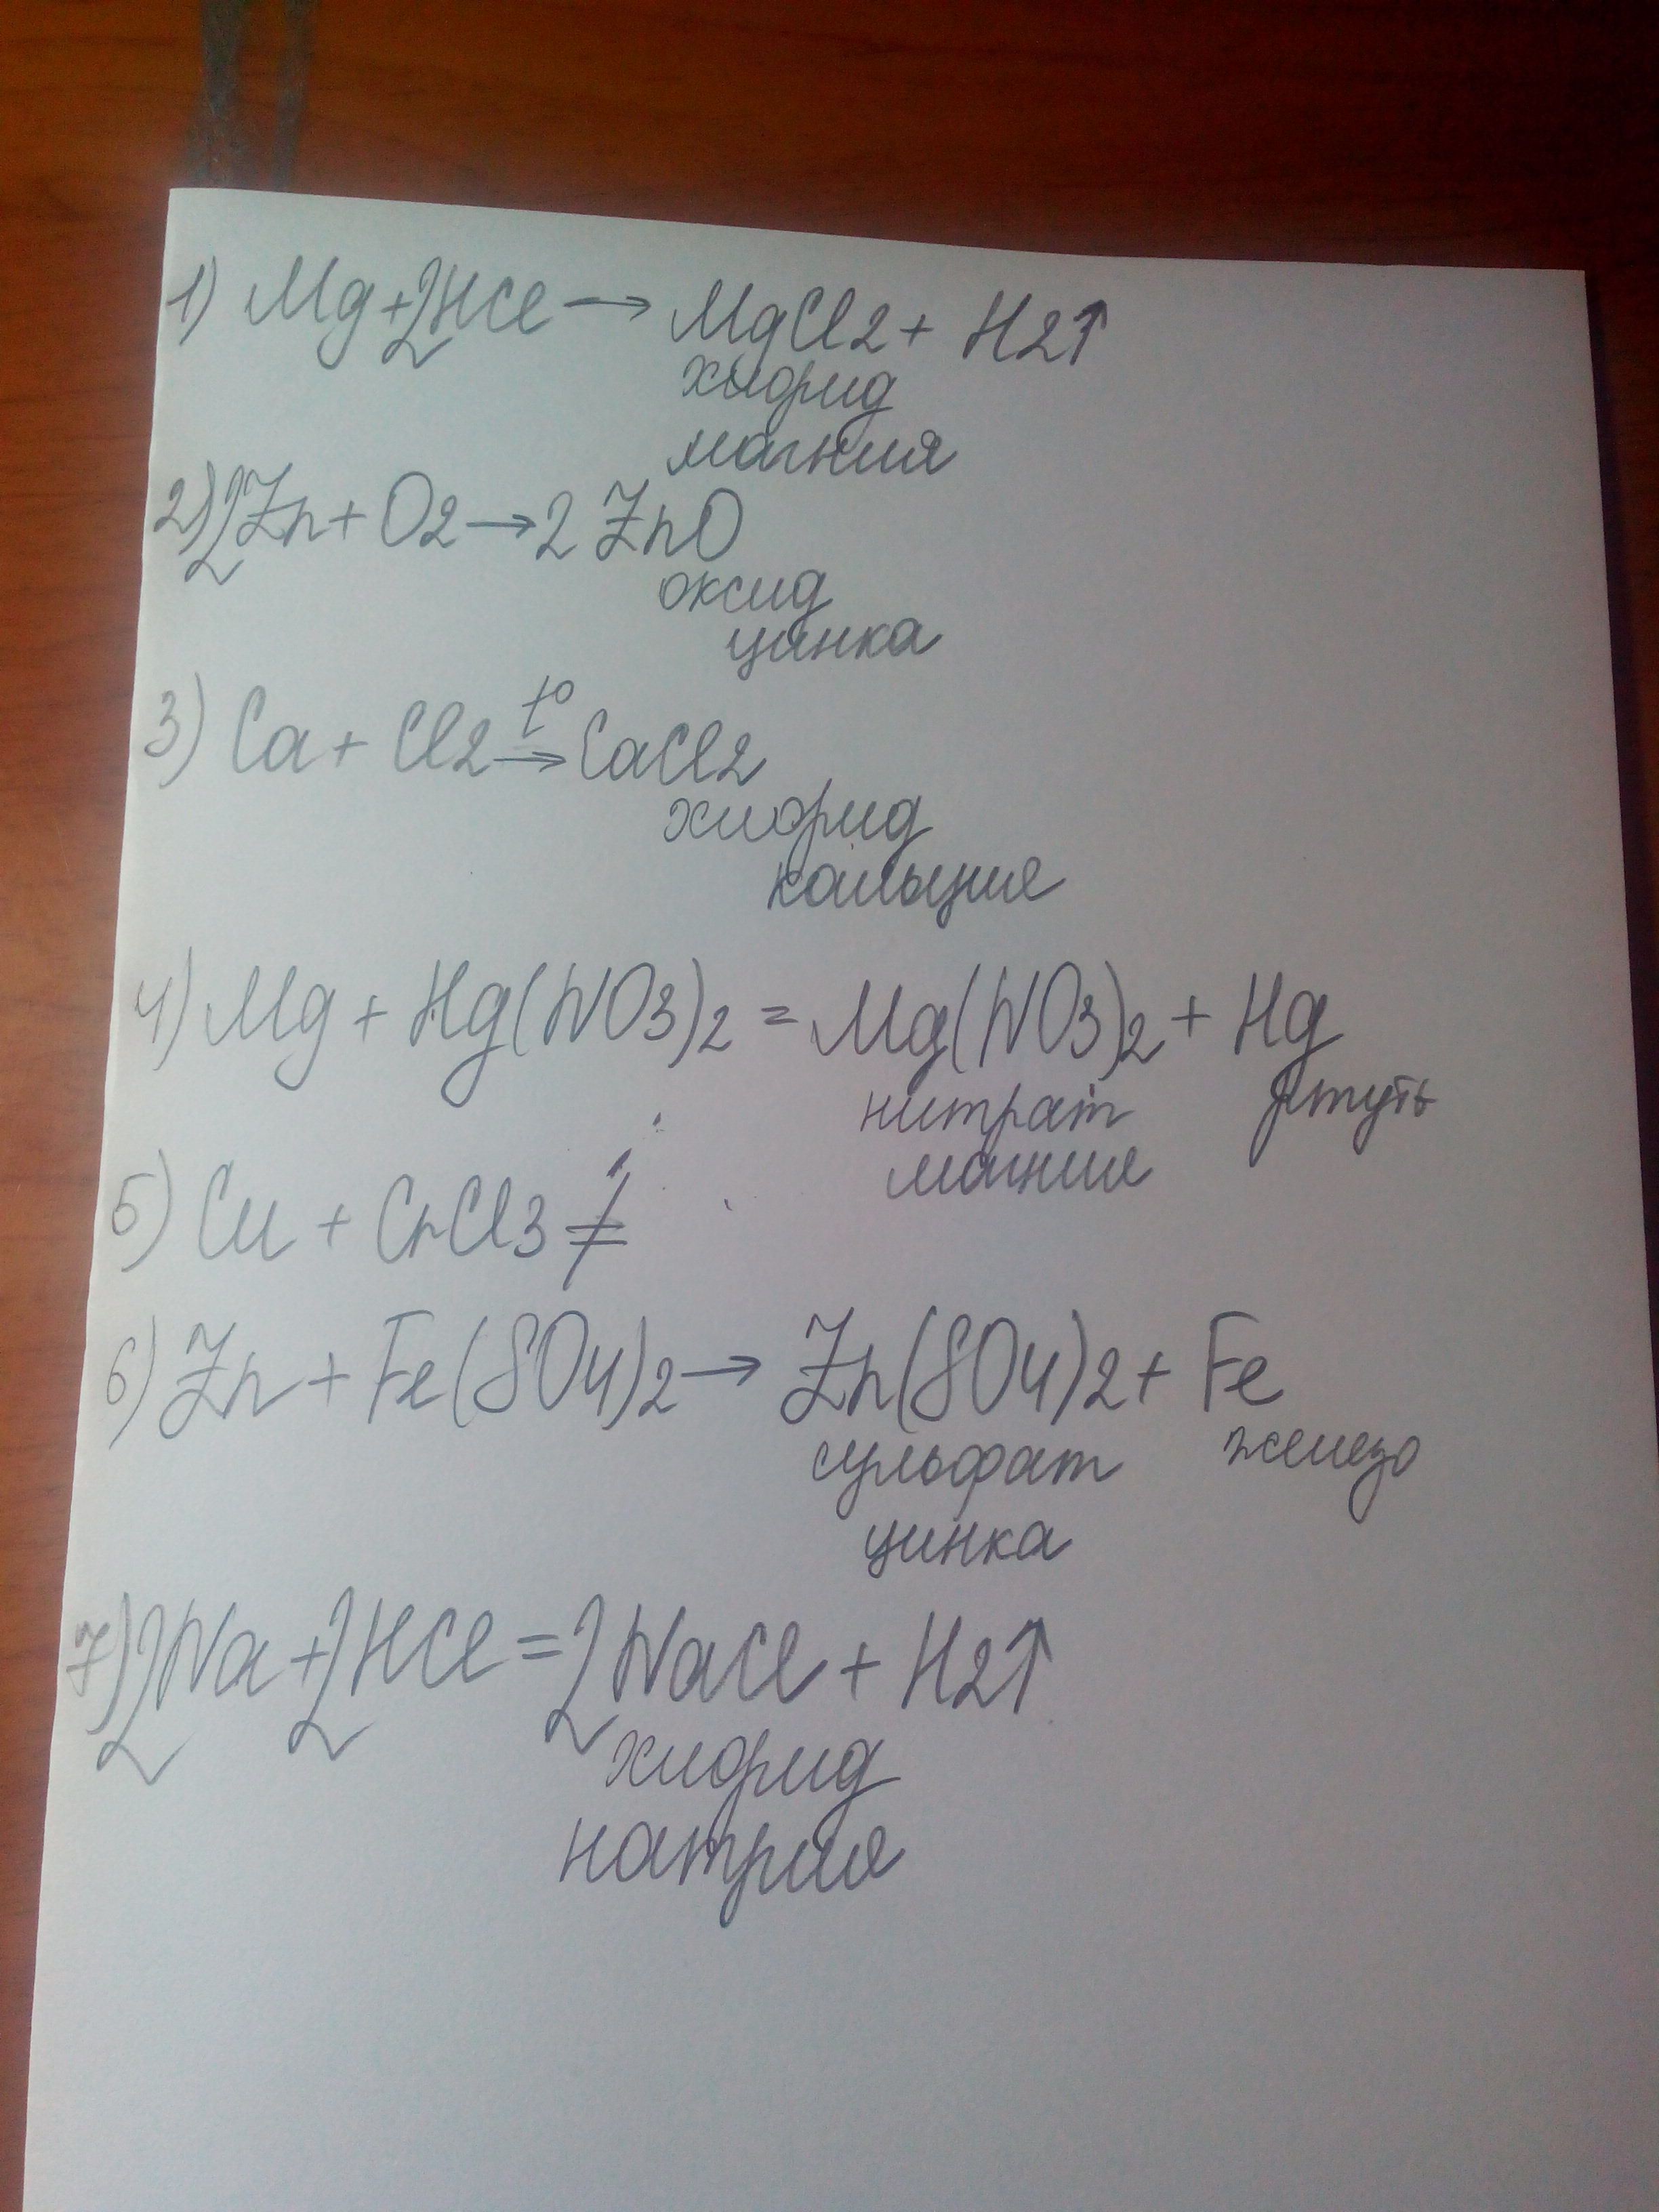 1) Mg + 2HCl → MgCl2 + H2↑
хлорид
магния
2) 2Zn + O2 → 2 ZnO
оксид
цинка
t°
3) Ca + Cl2 → CaCl2
хлорид
кальция
4) Mg + Hg(NO3)2 = Mg(NO3)2 + Hg
нитрат ртуть
магния
5) Cu + CrCl3 ≠
6) Zn + Fe(SO4)2 → Zn(SO4)2 + Fe
сульфат железо
цинка
7) 2Na + 2HCl = 2NaCl + H2↑
хлорид
натрия